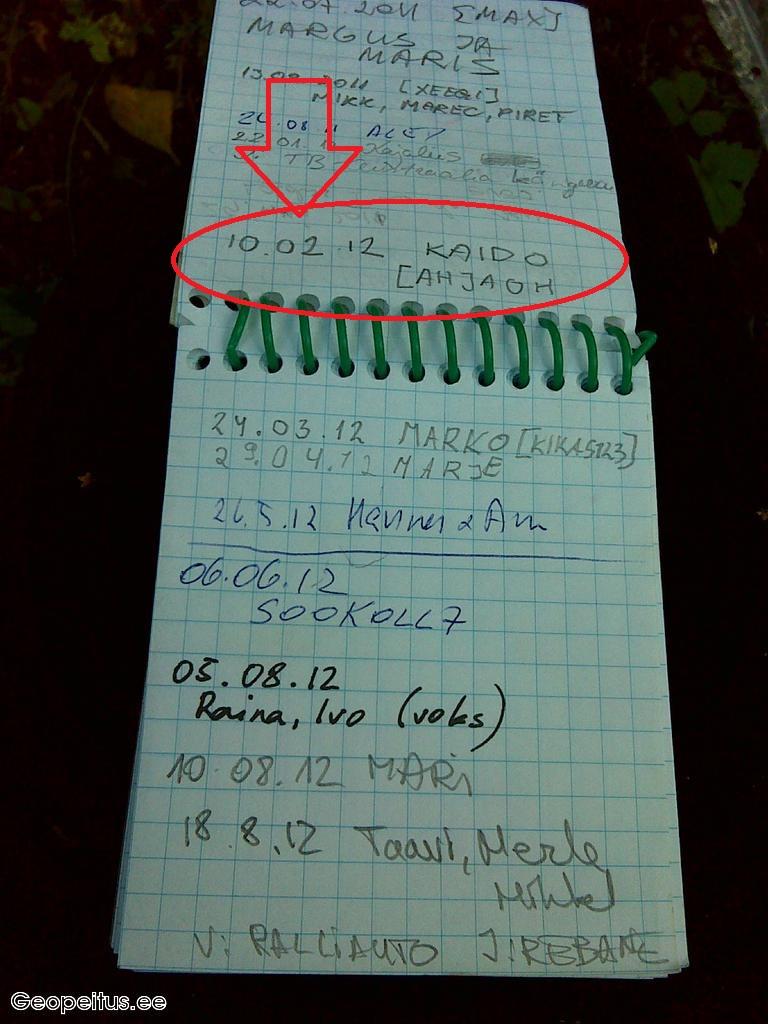 22.07.2011 [MAX]
MARGUS JA
MARIS
2011 [XEEQI]
MIKK, MAREC, PIRET
08 11 ALEX
01.1
TB
10.02.12 KAIDO
[AHJAOH
24.03.12 MARKO [KIKAS123]
29.04.12 MARJE
26.5.12 Hannes & Ann
06.06.12
SOOKOLL7
05.08.12
Raina, Ivo (voks)
10.08.12 MARi
18.8.12 Taavi, Merle
Mihkel
V: RALLIAUTO J: REBANE
Geopeitus.ee